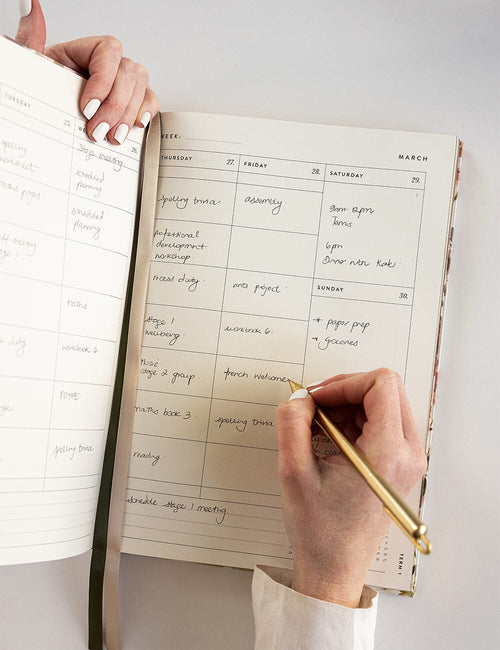 TUESDAY
25.
26.
Stage meeting
spelling
worksheet
maths pages
scheduled
planning
scheduled
planning
meeting
maths
duty
workbook 6.
PDHPE.
spelling trivia
WEEK:
MARCH
THURSDAY 27.
FRIDAY 28.
SATURDAY 29.
spelling trivia
assembly
9am-12pm
Tennis
6pm
Dinner with Kate.
professional
development
workshop.
recess duty.
arts project.
SUNDAY 30.
* paper prep
* groceries
stage 1
wellbeing.
workbook 6.
music
stage 2 group.
french welcome
maths book 3.
spelling trivia
reading.
schedule stage 1 meeting
TERM 1